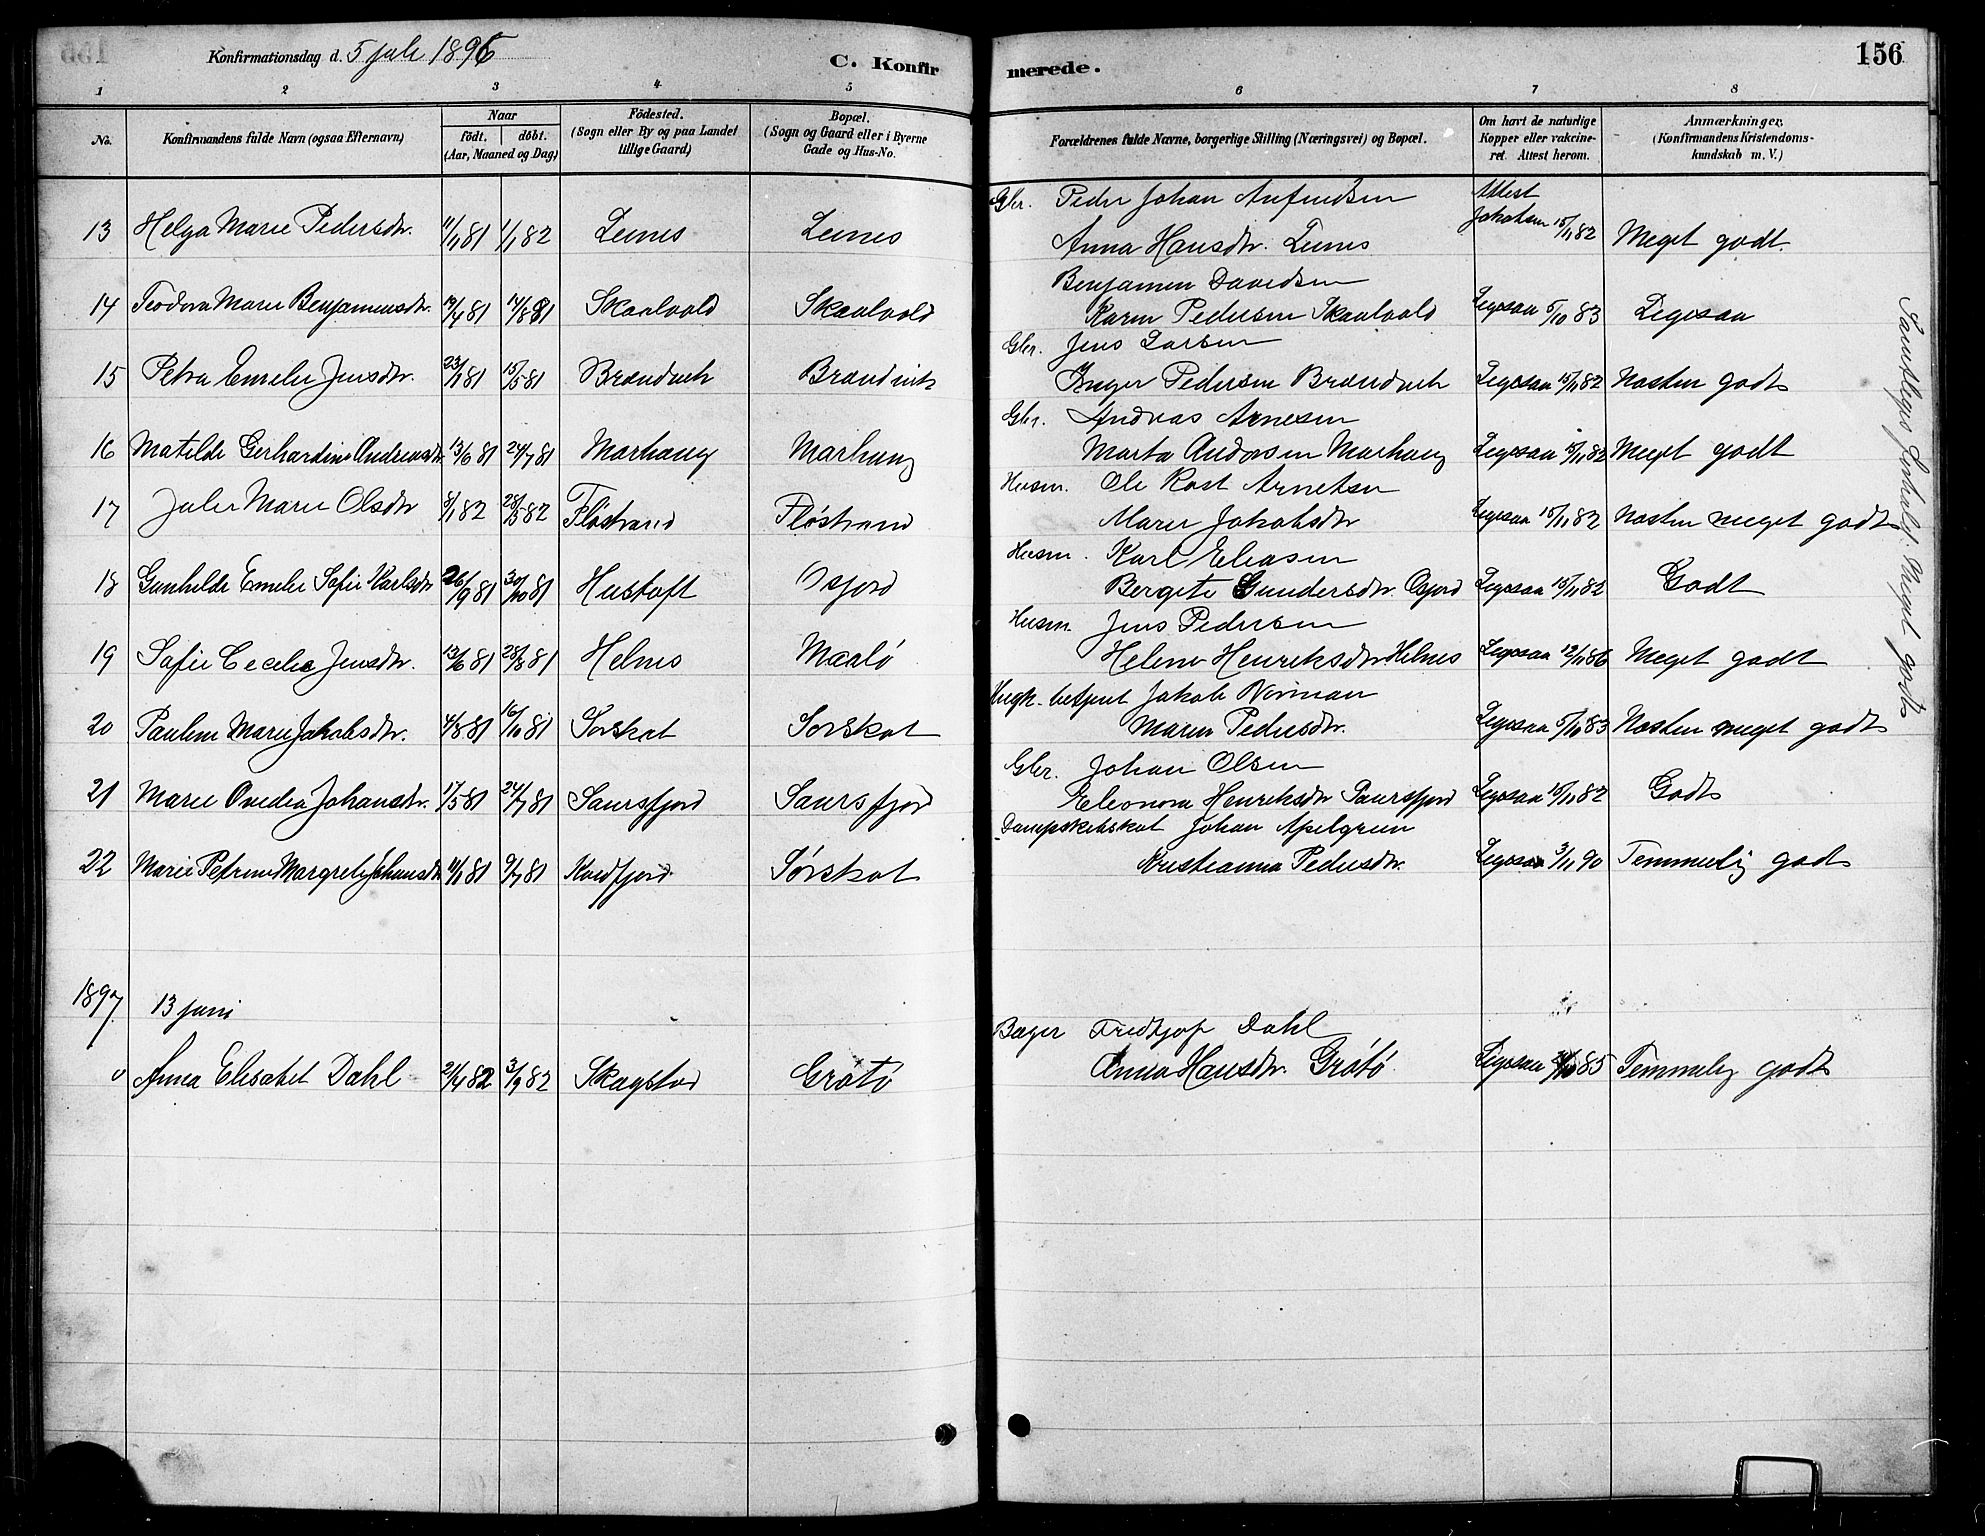 Konfirmationsdag d. 5 juli 1896
C. Konfirmerede.
156
1 2 3 4 5 6 7 8
No.
Konfirmandens fulde Navn (ogsaa Efternavn)
Naar
födt. döbt.
(Aar, Maaned og Dag)
Födested.
(Sogn eller By og paa Landet
tillige Gaard)
Bopæl.
(Sogn og Gaard eller i Byerne
Gade og Hus-No.
Forældrenes fulde Navne, borgerlige Stilling (Næringsvei) og Bopæl.
Om havt de naturlige
Kopper eller vakcine-
ret. Attest herom.
Anmærkninger,
(Konfirmandens Kristendoms-
kundskab m. V.)
Gbr. Peder Johan Anfindsen Attest
13 Helga Marie Pedersdtr. 11/11 81 1/1 82 Leines Leines Anna Hansdtr. Leines Jakobsen 15/11 82 Meget godt.
Benjamin Davidsen
14 Teodora Marie Benjaminsdtr. 19/4 81 14/8 81 Skaalvold Skaalvold Karen Pedersen Skaalvold Ligesaa 5/10 83 Ligesaa
Gbr. Jens Larsen
15 Petra Emelie Jensdtr. 23/1 81 15/5 81 Brændvik Brændvik Inger Pedersen Brændvik Ligesaa 15/11 82 Næsten godt
Gbr. Andreas Arnesen
16 Matilde Gerhardine Andreasdtr 13/6 81 24/7 81 Marhaug Marhaug Marta Andersen Marhaug Ligesaa 15/11 82 Meget godt
Husm. Ole Rost Arnetsen
17 Julie Marie Olsdtr 8/1 82 28/5 82 Fløstrand Fløstrand Maren Jakobsdtr Ligesaa 15/11 82 Næsten meget godt
Husm. Karl Eliasen
18 Gunhilde Emelie Sofie Karlsdtr 26/9 81 30/10 81 Hustoft Osfjord Bergete Gundersdtr. Osfjord Ligesaa 15/11 82 Godt
Husm. Jens Pedersen
19 Sofie Cecelie Jensdtr. 13/6 81 28/8 81 Helnes Maalø Helene Henriksdtr Helnes Ligesaa 12/11 86 Meget godt
betjent Jakob Norman
20 Pauline Marie Jakobsdtr. 4/8 81 16/10 81 Sørskot Sørskot Maren Pedersdtr. Ligesaa 5/10 83 Næsten meget godt
Gbr. Johan Olsen
21 Marie Ovedia Johansdtr. 17/5 81 24/7 81 Saursfjord Saursfjord Eleonora Henriksdtr Saursfjord Ligesaa 15/11 82 Godt
Johan Apelgren
22 Marie Petrine Margrete Johansdtr 11/1 81 9/7 81 Kaldfjord Sørskot Kristianna Pedersdtr. Ligesaa 3/11 90 Temmelig godt
1897 13 juni
Bager Fridtjof Dahl
Anna Elisabet Dahl 21/4 82 3/9 82 Skagstad Grøtø Anna Hansdtr. Grøtø Ligesaa 85 Temmelig godt
Meget godt